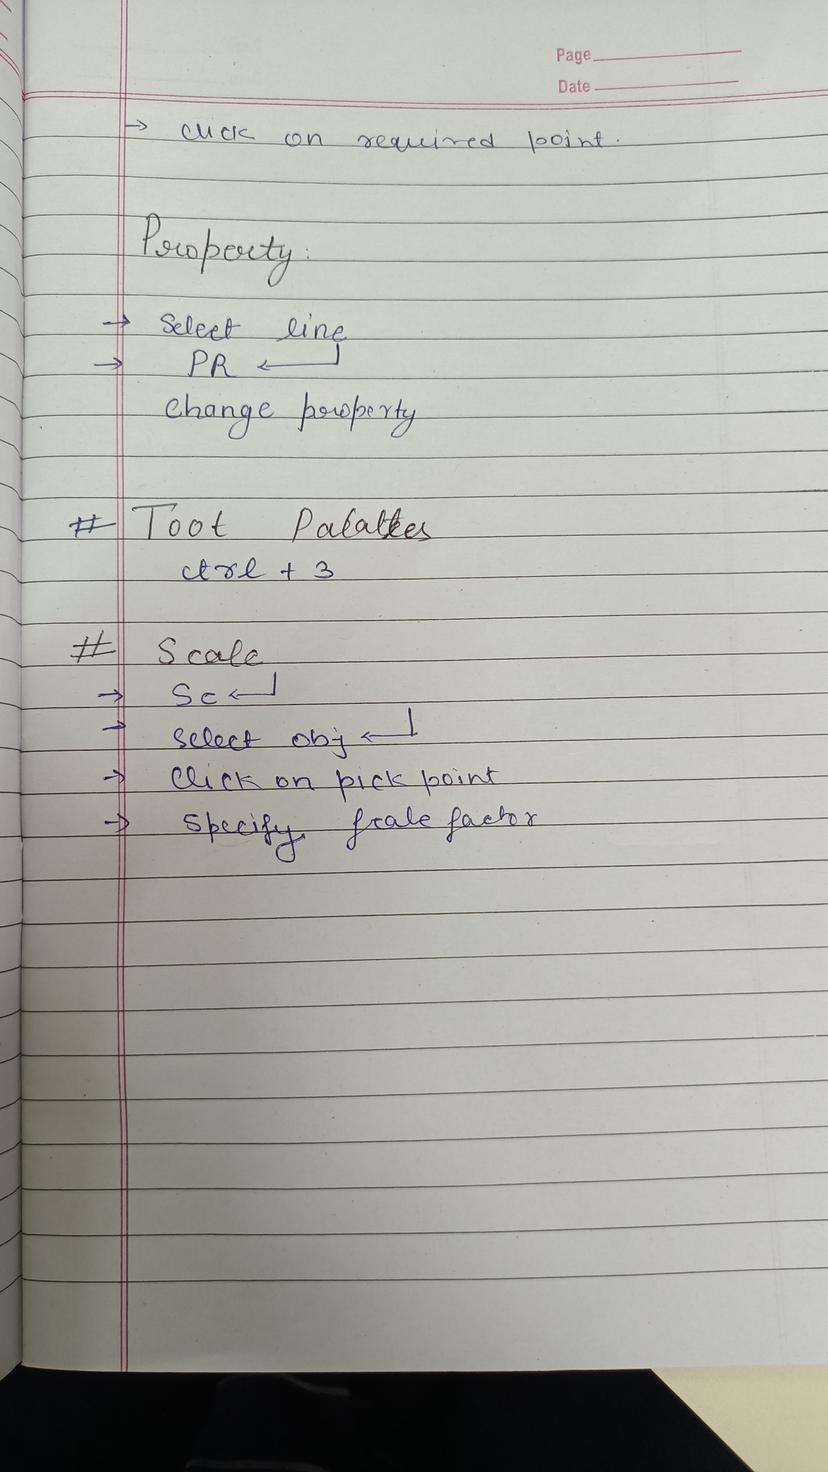 Page
Date
→ click on required point.
Property:
→ Select line
→ PR ↵
change property
# Toot Palattes
ctrl + 3
# Scale
→ Sc ↵
→ Select obj ↵
→ Click on pick point
→ Specify scale factor